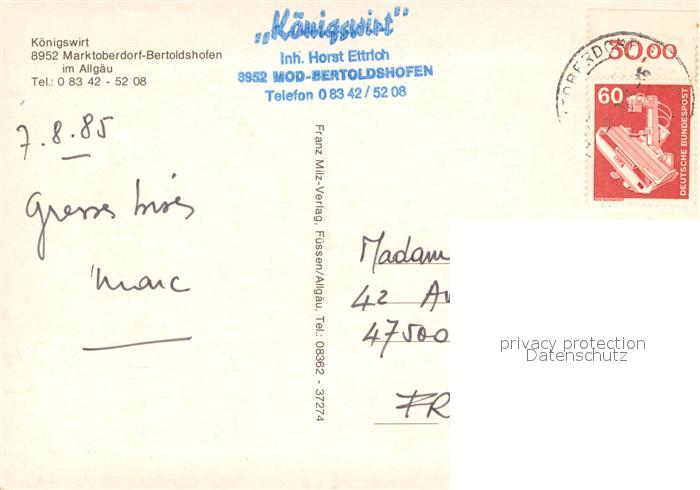 Königswirt
8952 Marktoberdorf-Bertoldshofen
im Allgäu
Tel.: 0 83 42 - 52 08
„Königswirt"
Inh. Horst Ettrich
8952 MOD-BERTOLDSHOFEN
Telefon 0 83 42 / 52 08
30,00
60
DEUTSCHE BUNDESPOST
RÖNTGENGERÄT
7.8.85
Grosses bises
Marc
Franz Milz-Verlag, Füssen/Allgäu, Tel.: 08362 - 37274
Madam
42 Av
47500
FR
privacy protection
Datenschutz